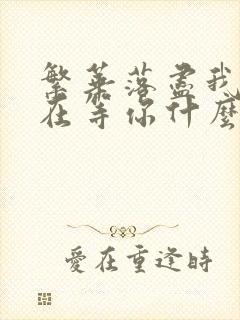 繁華落盡我
在等你什麼
愛在重逢時